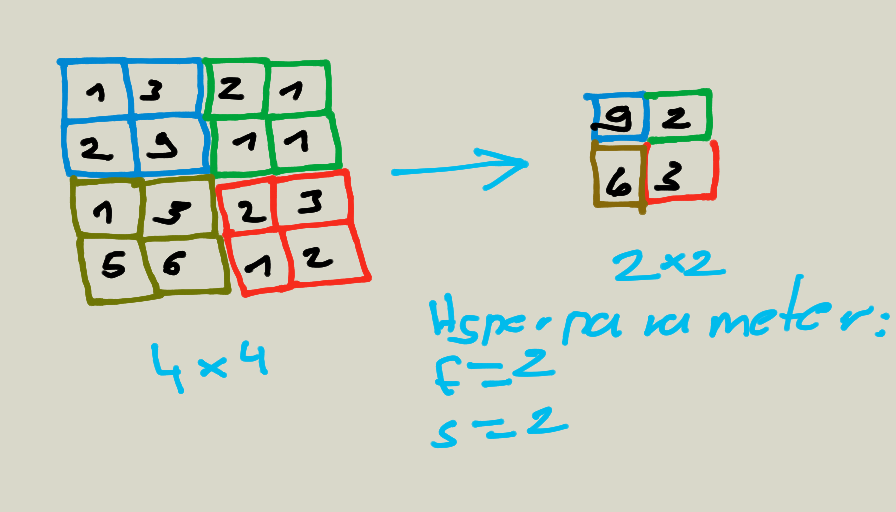 1 3 2 1
2 9 1 1
1 3 2 3
5 6 1 2
4×4
9 2
6 3
2×2
Hyperparameter:
f=2
s=2